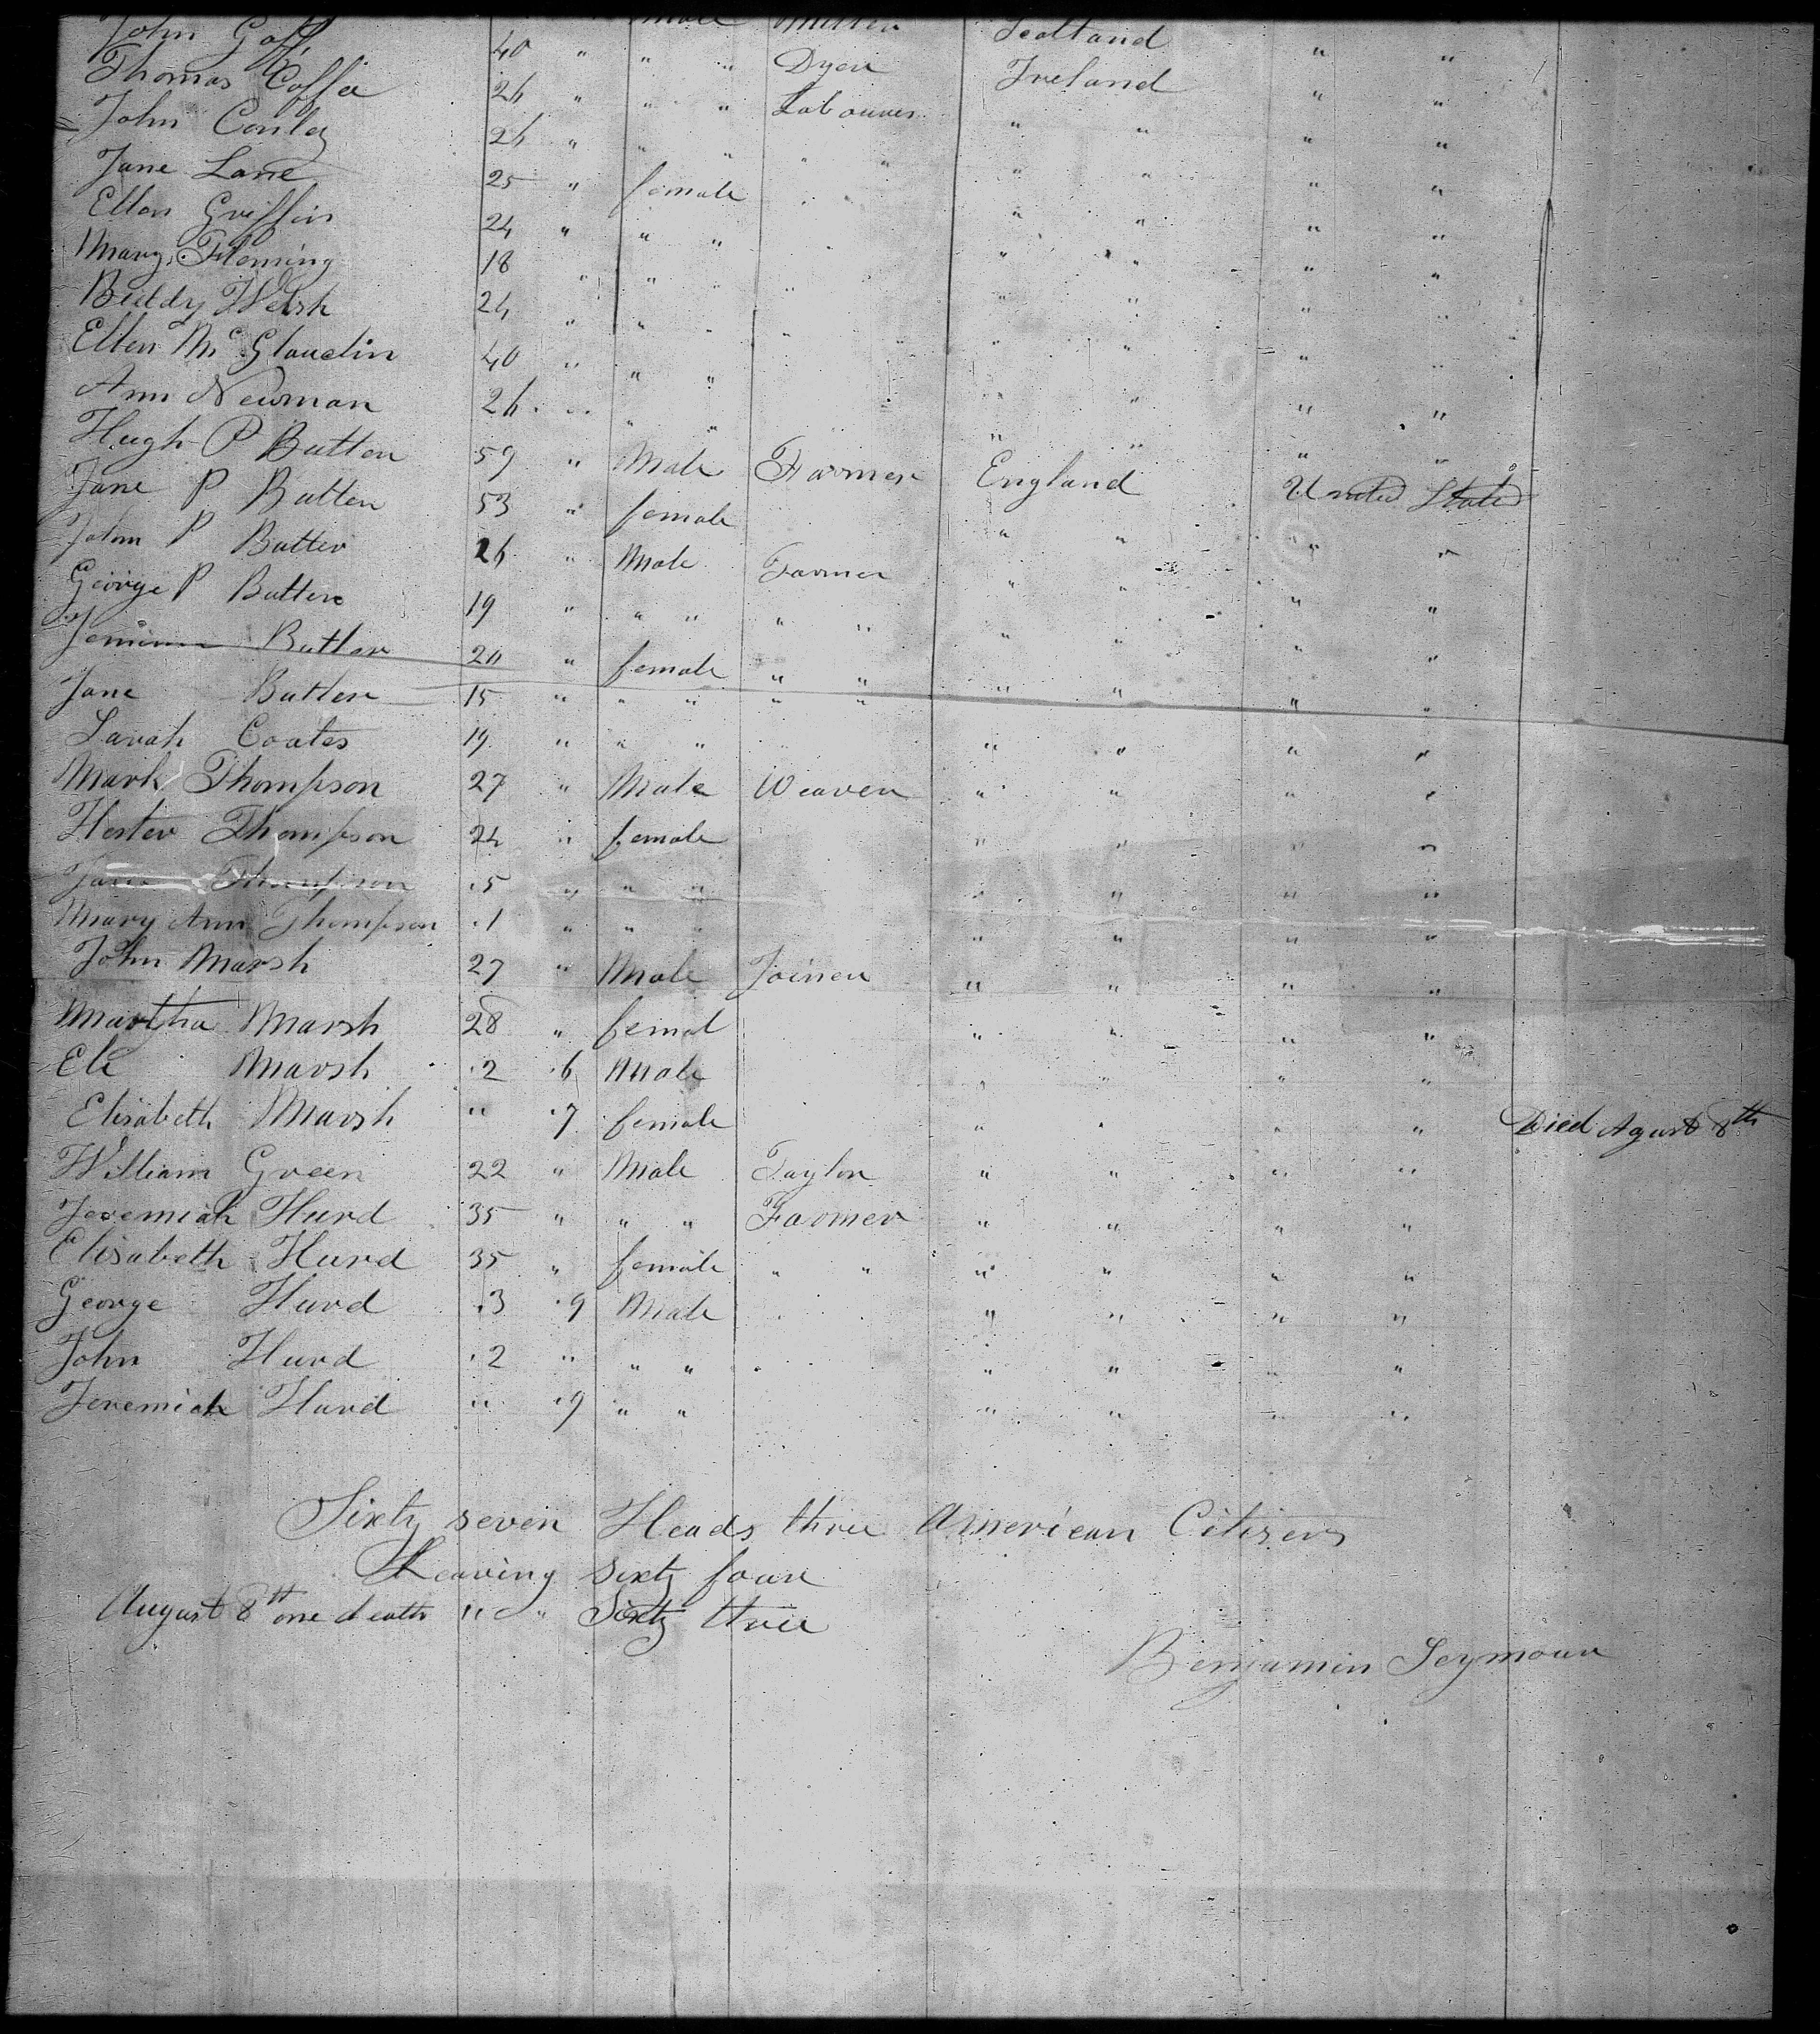 John Goff 40 " " " Dyer Scotland " "
Thomas Coffee 26 " " " Labourer Ireland " "
John Conley 26 " " " " " " " " "
Jane Lane 25 " female " " " "
Ellen Griffin 24 " " " " " " "
Mary Fleming 18 " " " " " " "
Biddy Welsh 24 " " " " " " "
Ellen Mc Glaudin 40 " " " " " " "
Ann Newman 26 " " " " " " "
Hugh P Butler 59 " Male Farmer England United States
Jane P Butler 53 " female " " " "
John P Butler 26 " Male Farmer " " " "
George P Butler 19 " " " " " " " " "
Butler 20 " female " " " " " "
Jane Butler 15 " " " " " " " " "
Sarah Coates 19 " " " " " " "
Mark Thompson 27 " Male Weaver " " " "
Hester Thompson 24 " female " " " "
Jane Thompson .5 " " " " " " "
Mary Ann Thompson .1 " " " " " " "
John Marsh 27 " Male Joiner " " " "
Martha Marsh 28 " femal " " " "
Eli Marsh .2 .6 Male " " " "
Elisabeth Marsh " .7 female " " " " Died Agust 8th
William Green 22 " Male Taylor " " " "
Jeremiah Hurd 35 " " " Farmer " " " "
Elisabeth Hurd 35 " female " " " " " "
George Hurd .3 .9 Male " " " "
John Hurd .2 " " " " " " "
Jeremiah Hurd " .9 " " " " " "
Sixty seven Heads three American Citisens
Leaving Sixty four
August 8th one death " " Sixty three
Benjamin Seymour